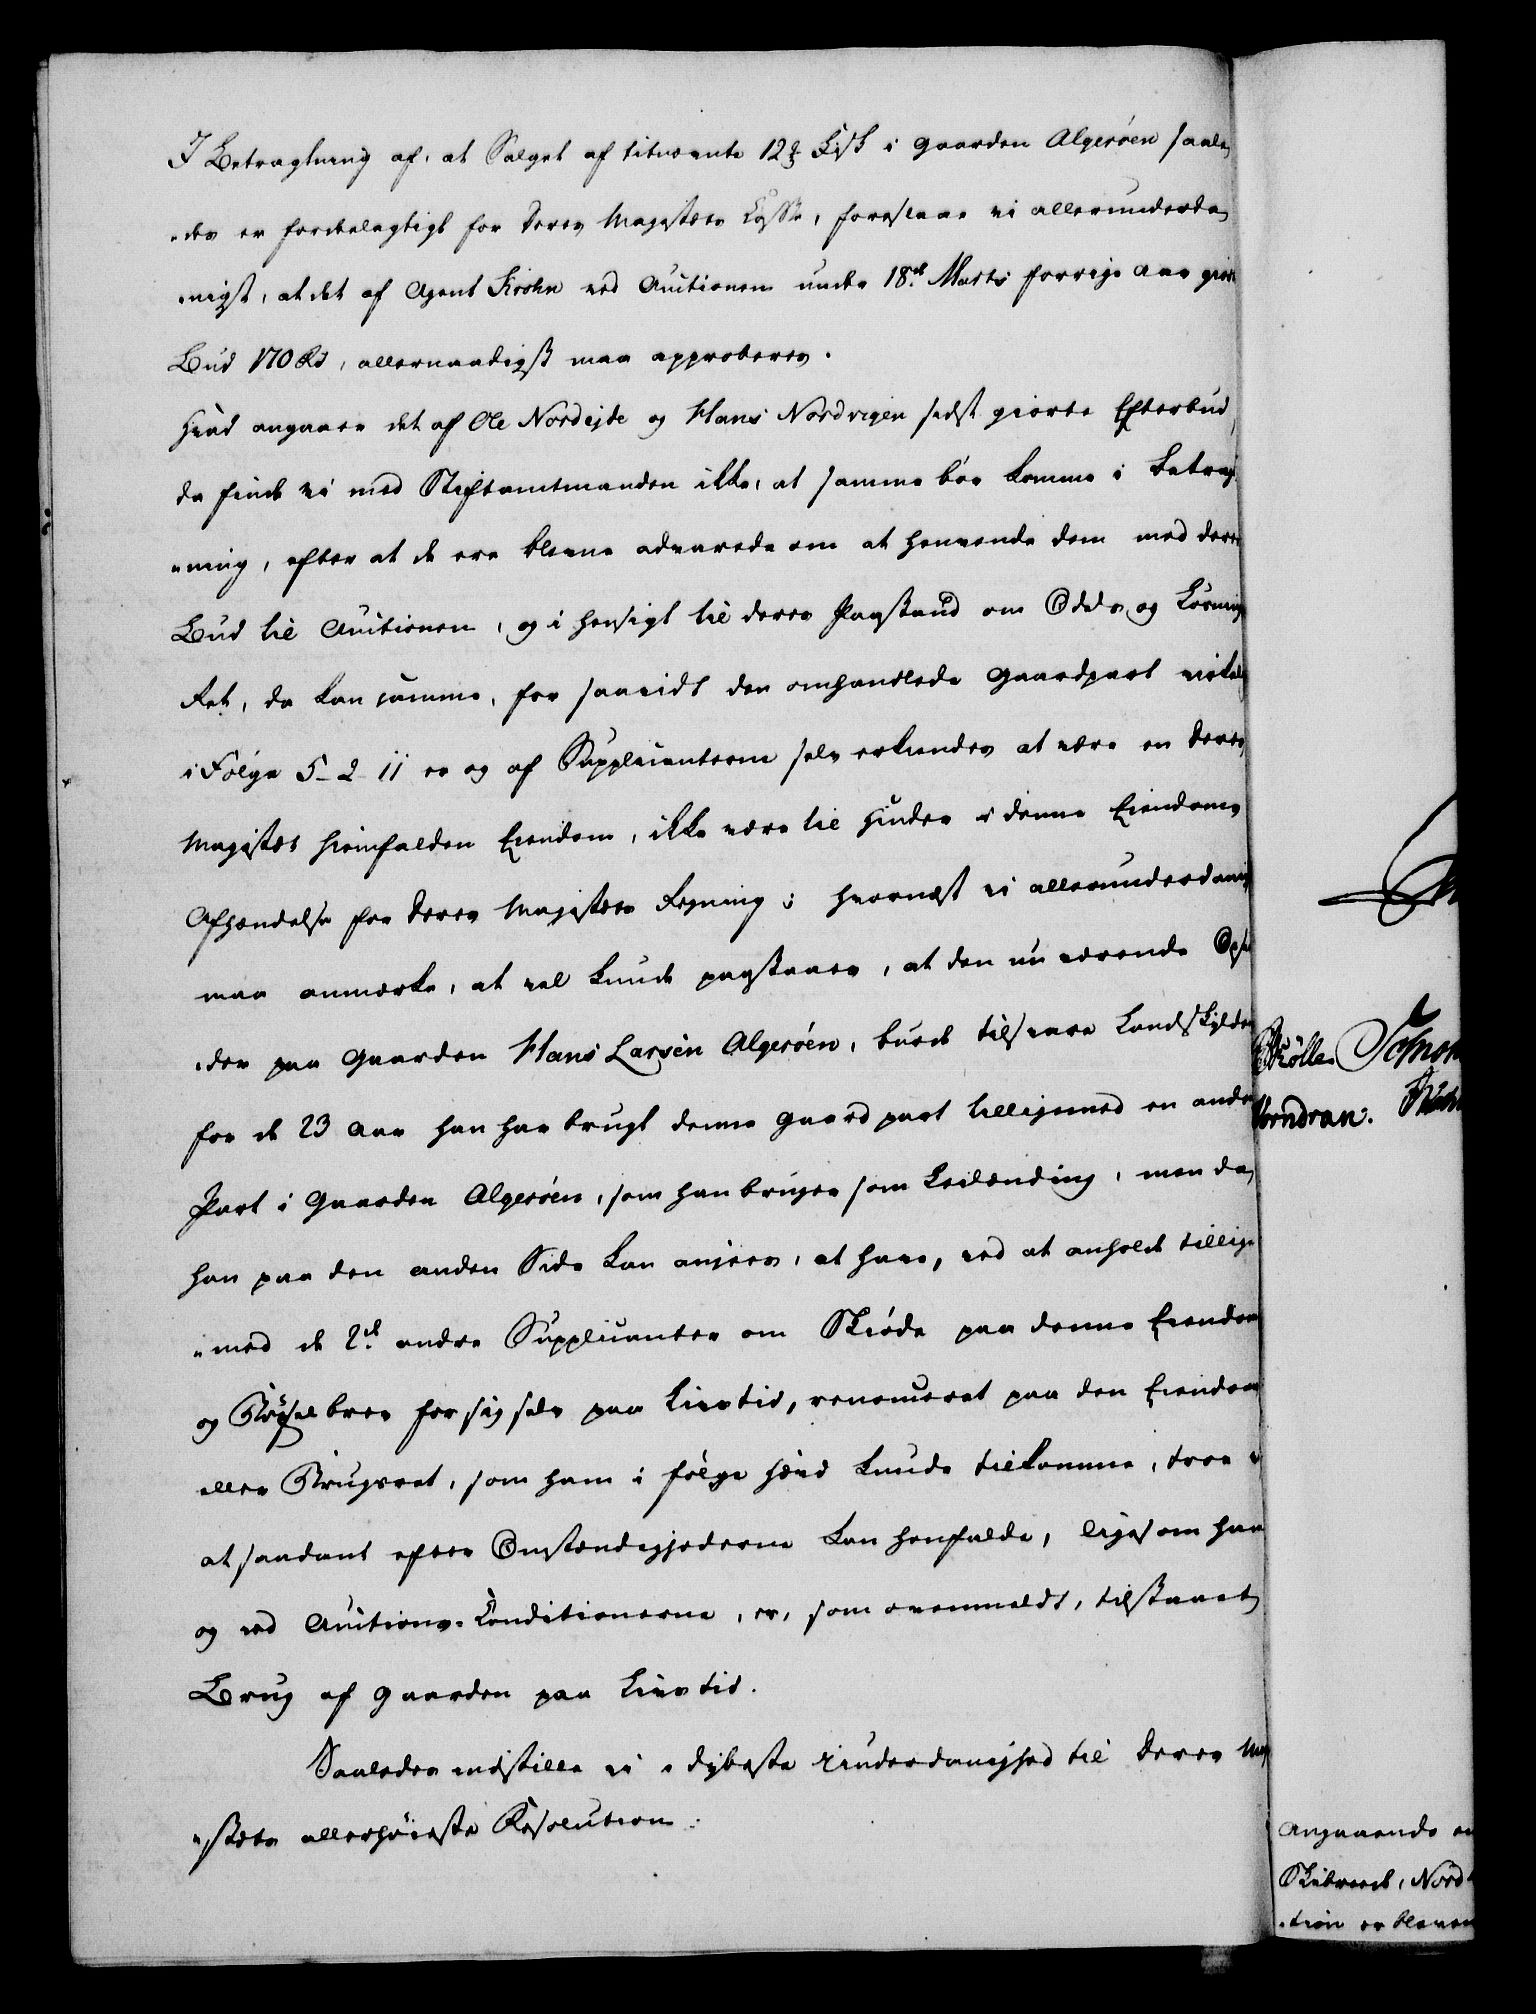 I Betragtning af, at Salget af titnævnte 12 ℔ Fisk i Gaarden Algerøen saale
„des er fordelagtigt for Deres Majestæts Casse, foreslaae vi allerunderda
„nigst, at det af Agent Krohn ved Auctionen under 18de Marts forrige Aar giorte
Bud 170 Rd, allernaadigst maa approberes.
Hvad angaaer det af Ole Nordejde og Hans Nordvigen sidst giorte Efterbud,
da finde vi med Stiftamtmanden ikke, at samme bør komme i Betragt
„ning, efter at de ere blevne advarede om at henvende dem med deres
Bud til Auctionen, og i Hensigt til deres Paastand om Odels og Løsnings
Ret, da kan samme, for saavidt den omhandlede Gaardpart virkelig
i Følge 5-2-11 er og af Supplicanterne selv erkiendes at være en Deres
Majestæt hiemfalden Eiendom, ikke være til Hinder i denne Eiendoms
Afhændelse for Deres Majestæts Regning; hvornæst vi allerunderdanigst
maa anmærke, at vel kunde paastaaes, at den nu værende Opsid
„der paa Gaarden Hans Larsen Algerøen, burde tilsvare Landskylden
for de 23 Aar han har brugt denne Gaardpart tilligemed en anden
Part i Gaarden Algerøen, som han bruger som Leilænding, men da
han paa den anden Side kan ansees, at have, ved at anholde tillige
„med de 2de andre Supplicanter om Skiøde paa denne Eiendom
og Bøxelbrev for sig selv paa Livstid, renonceret paa den Eiendoms
eller Brugsret, som ham i følge Hævd kunde tilkomme, troe vi
at saadant efter Omstændighederne kan henfalde, ligesom han
og ved Auctions-Conditionerne, er, som ovenmeldt, tilstaaet
Brug af Gaarden paa Livstid.
Saaledes indstille vi i dybeste Underdanighed til Deres Maj
„stæts allerhøieste Resolution:
Møller
Vorndran.
Angaaende en
Skibreede, Nord
„tion er bleven